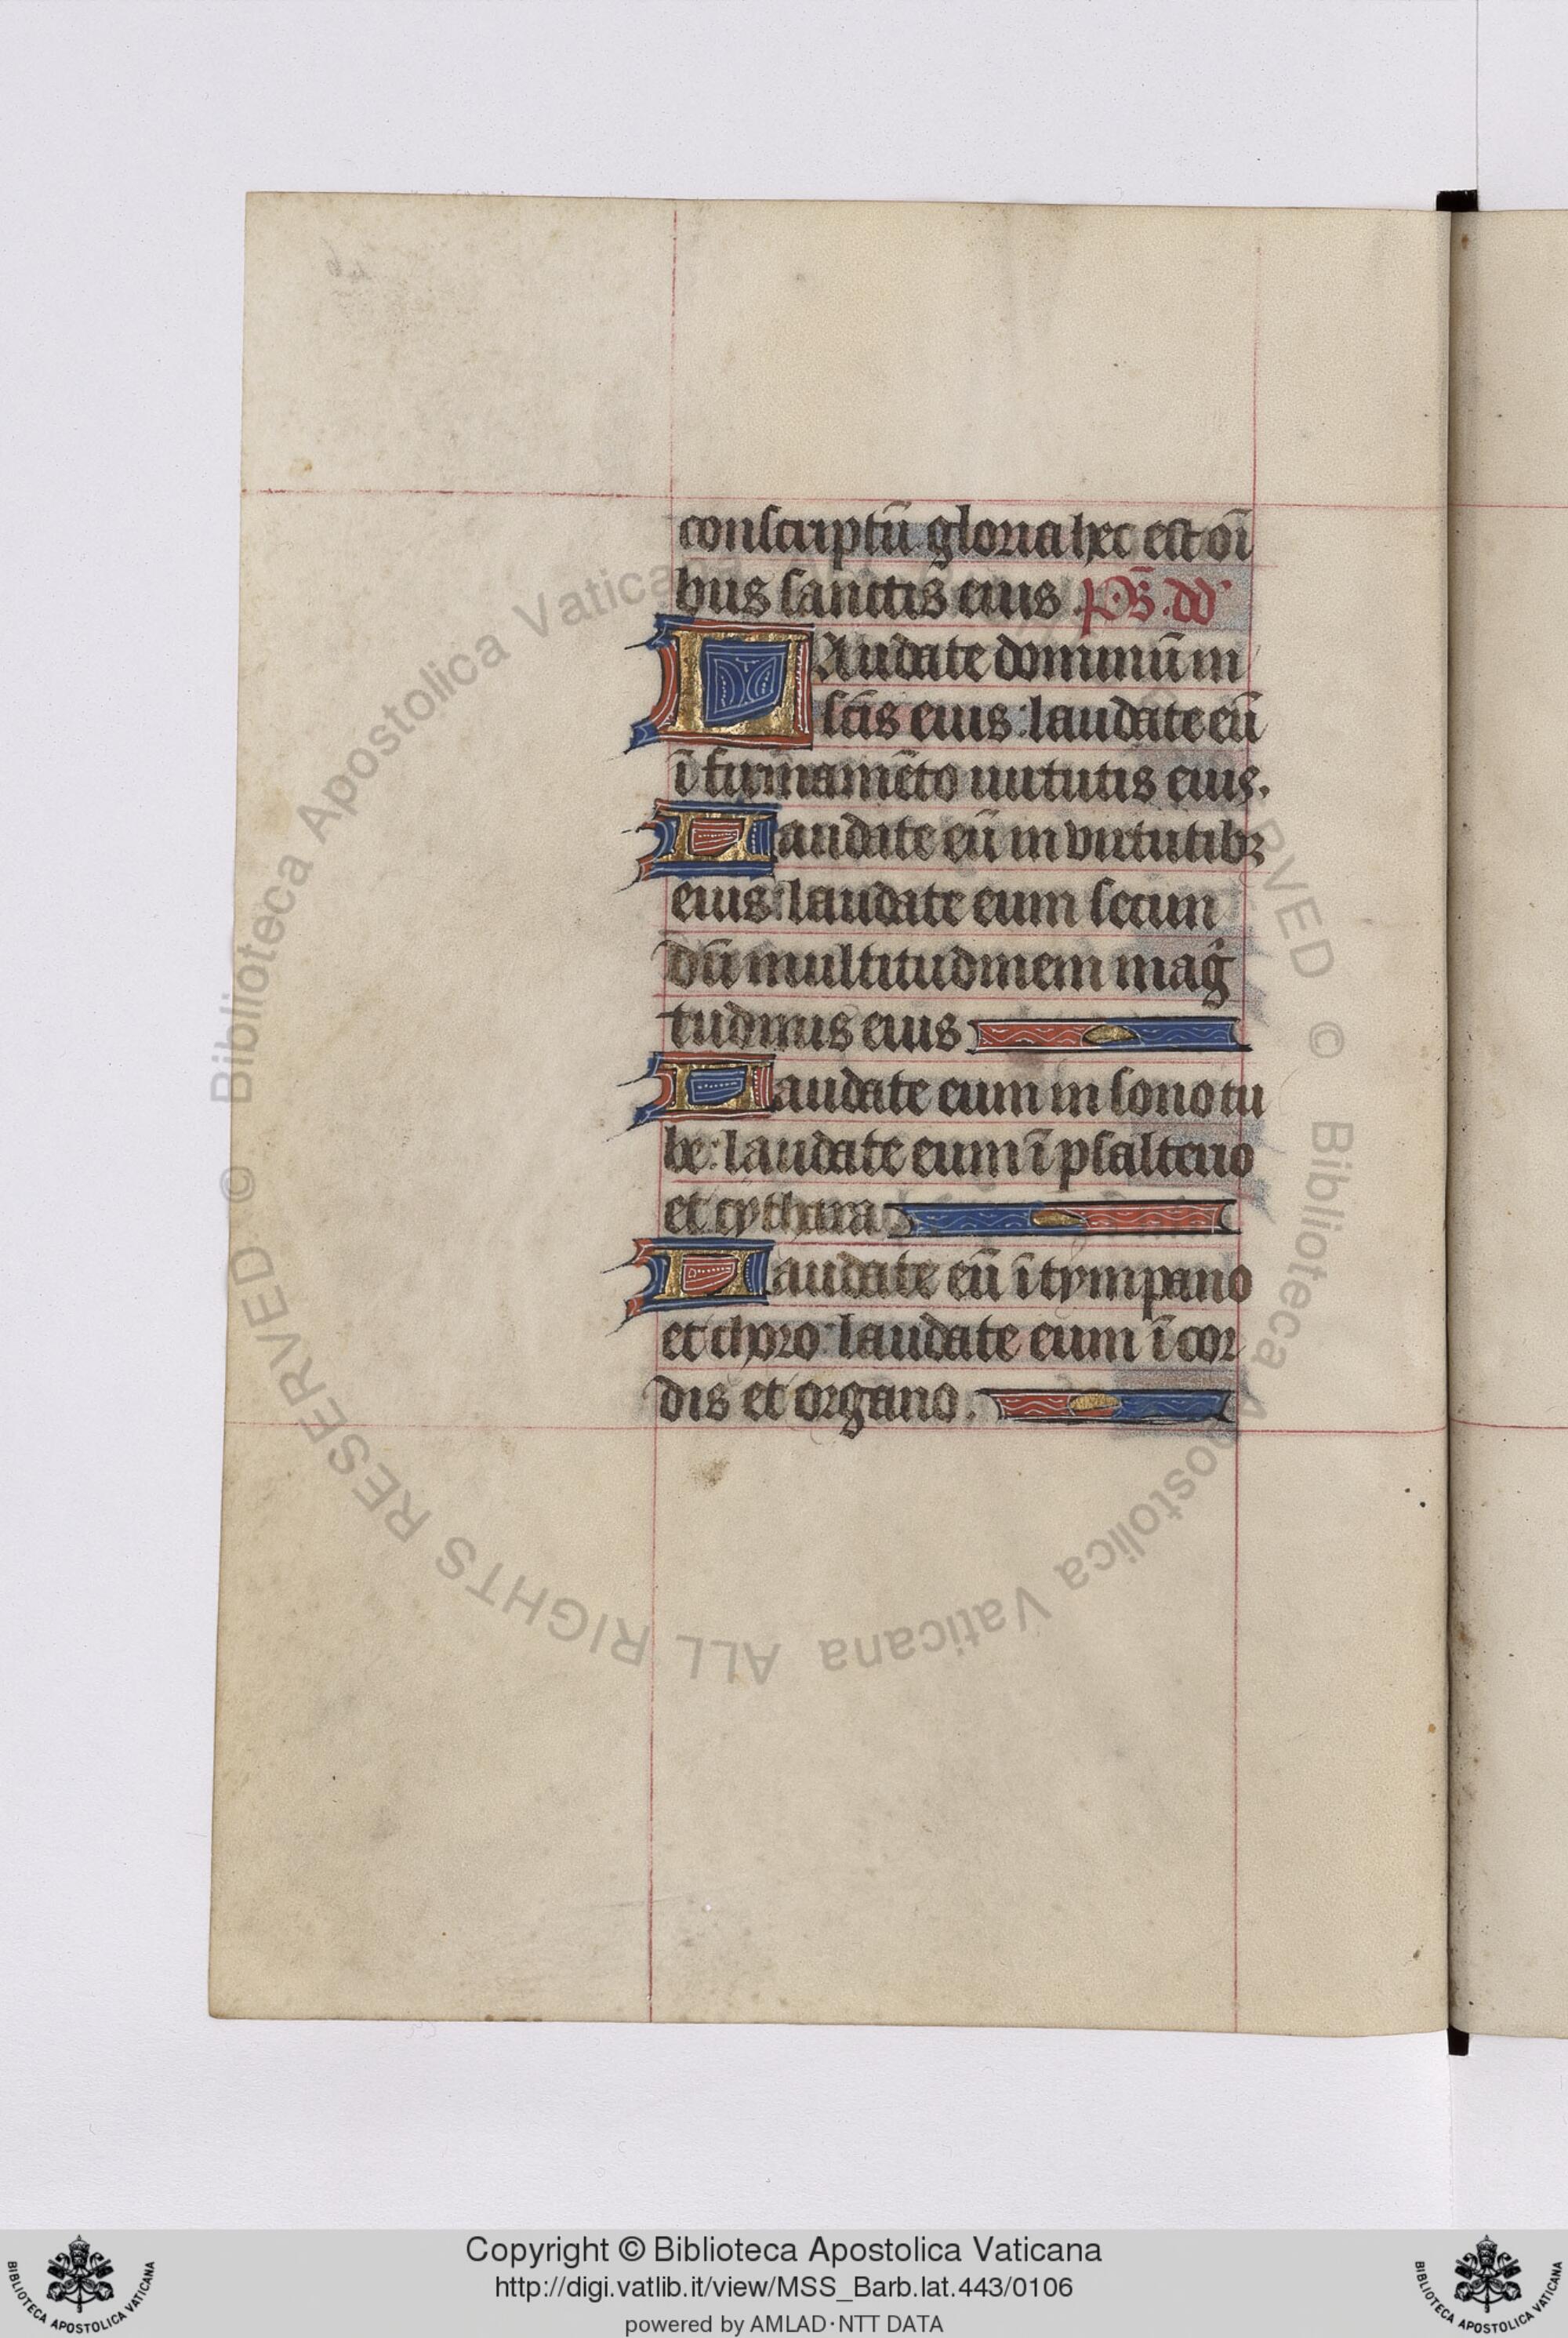 conscriptū gloria hec est oī
bus sanctis eius .pS̄.dd'
LAudate dominū in
sc̄is eius: laudate eū
ī firmamēto uirtutis eius.
Laudate eū in virtutibꝫ
eius: laudate eum secun
dū multitudinem mag̍
tudinis eius
Laudate eum in sono tu
be: laudate eum ī psalterio
et cythara
Laudate eū ī tympano
et choro: laudate eum ī cor
dis et organo.
© Biblioteca Apostolica Vaticana
ALL RIGHTS RESERVED
Copyright © Biblioteca Apostolica Vaticana
http://digi.vatlib.it/view/MSS_Barb.lat.443/0106
powered by AMLAD·NTT DATA
BIBLIOTECA APOSTOLICA VATICANA
BIBLIOTECA APOSTOLICA VATICANA